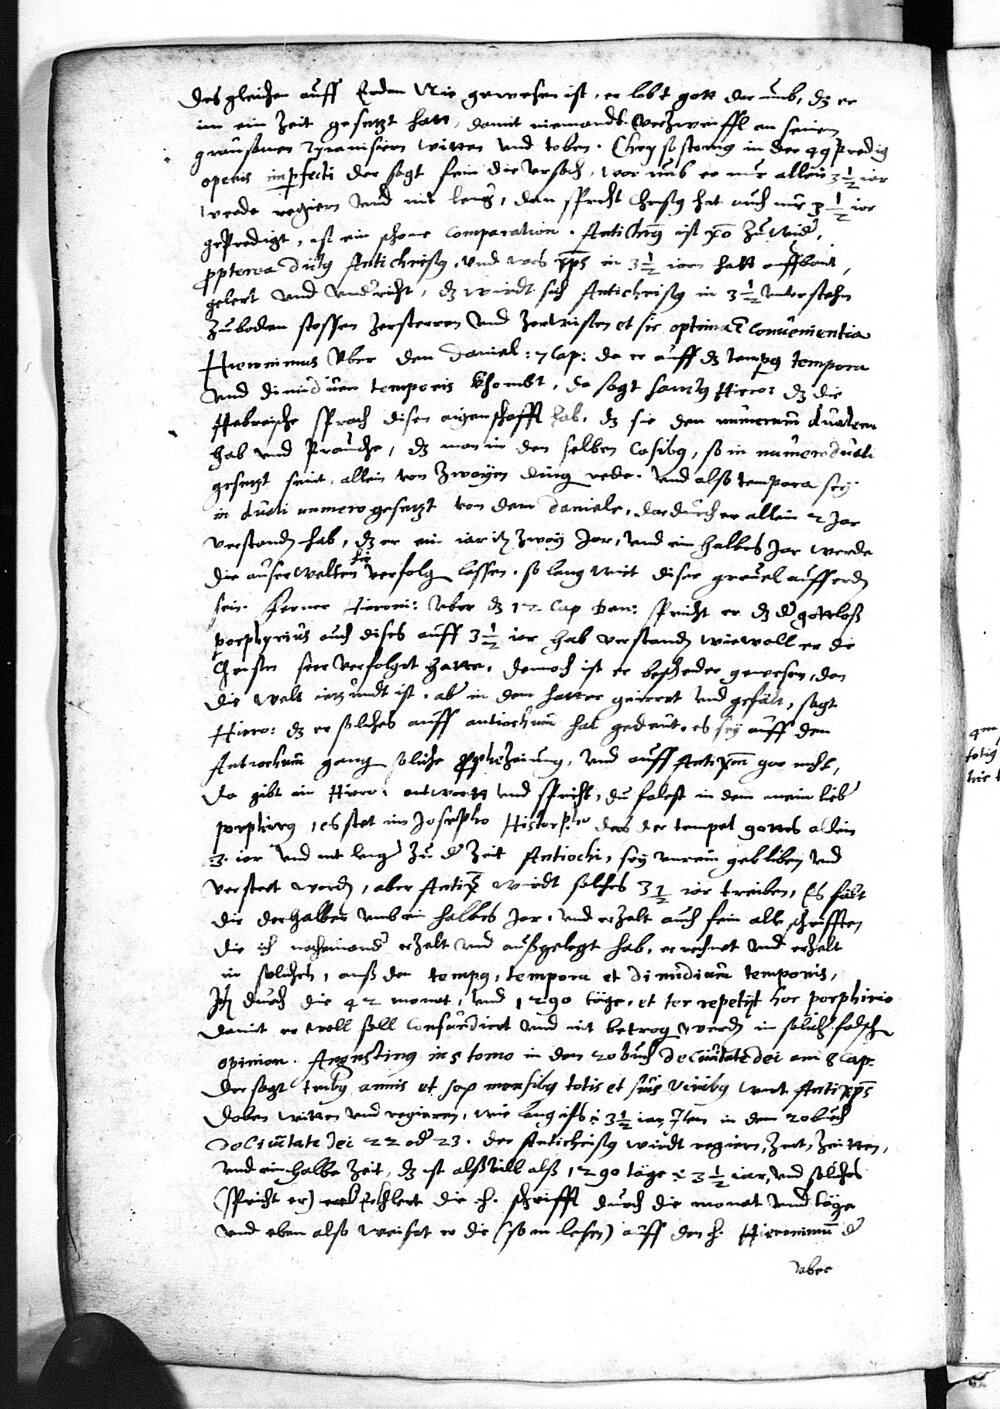 desgleichen auff Erden Nie gewesen ist, er lobt gott darumb, dz er
im ein Zeit gesetzt hatt, damit niemandt verzweiffl an seinem
grausamen Tyranisiern witten und toben. Chrysostomg in der 49 Predig
operis imperfecti der sagt sein die ursach, warumb er nur allein 3½ iar
werde regiern und nit leng, dan spricht Christg hat auch nur 3½ iar
gepredigt, ist ein schone comparation. Antichrg ist xpo zu wid,
propterea dicitg Antichristg, und was xps in 3½ iarn hatt aufferbaut,
gelert und undricht, dz wirdt sich Antichristg in 3½ understehn
Zuboden stossen zersterren und zertristen et sic optima convenientia
Hieronimus Uber den Daniel: 7 Cap: da er auff dz tempg tempora
und dimidium temporis khombt, da sagt sanctg Hiero: dz die
Hebreische sprach disen aigenschafft hab, dz sie den numerum dualem
hab und Prauche, dz man in den selben Casibg, so in numero duali
gesetzt seint, allein von Zwayen ding rede. Und also tempora sey
in duali numero gesetzt von dem Daniele, dardurch er allein 2 Jar
verstanden hab, dz er ein iar Zwey Jar, und ein halbes Jar werde
die auserwelten verfolg lassen. so lang wirt diser greuel auff erd
sein. Ferner Hieroni: Uber dz 12 Cap Dan: spricht er dz d gottloß
porphyrius auch dises auff 3½ iar hab verstanden wiewoll er die
Christen seer verfolget hatte, dennoch ist er bescheider gewesen, dan
die welt iezundt ist. ab in dem hatt er geirret und gefält, sagt
Hiero: dz er solches auff antiochum hat gedeut, es sey auff den
Antiochum gang soliche prophezeiung, und auff Antixpm gar nicht,
Da gibt im Hiero: antwortt und spricht, du falest in dem mein lieb
porphirg, es stet im Josepho Histor: das der tempel gottes allein
3. iar und nit leng Zu d Zeit Antiochi, sey unrein gebliben und
verstert worden, aber Antixps wirdt solches 3½ iar treiben, Es fält
dir derhalben umb ein halbes Jar, und erzelt auch sein alle schrifften
die ich nacheinand erzelt und außgelegt hab, er rechnet und erzelt
in solichen, auß den tempg, tempora et dimidium temporis,
Jtem durch die 42 monat, und 1290 täge, et ter repetijt hoc porphirio
damit er woll soll confundiert und nit betrogg werden in solich falsch
opinion. Augustinus in 5 tomo in dem 20 buch De Civitate dei am 8 Cap.
Der sagt tribg annis et sex mensibg totis et suis viribg wirt Antixps
doben witten und regieren, wie lang ists: 3½ iar, Jtem in dem 20 buch
De Civitate dei 22 od 23. der Antichristg wirdt regiern, Zeit, Zeitten,
und ein halbe Zeit, dz ist alßvill alß 1290 täge: 3½ iar, und solches
(spricht er) erklert die h. schrifft durch die monat und täge
und eben also weiset er die (so in lesen) auff den h. Hieronimum d
uber